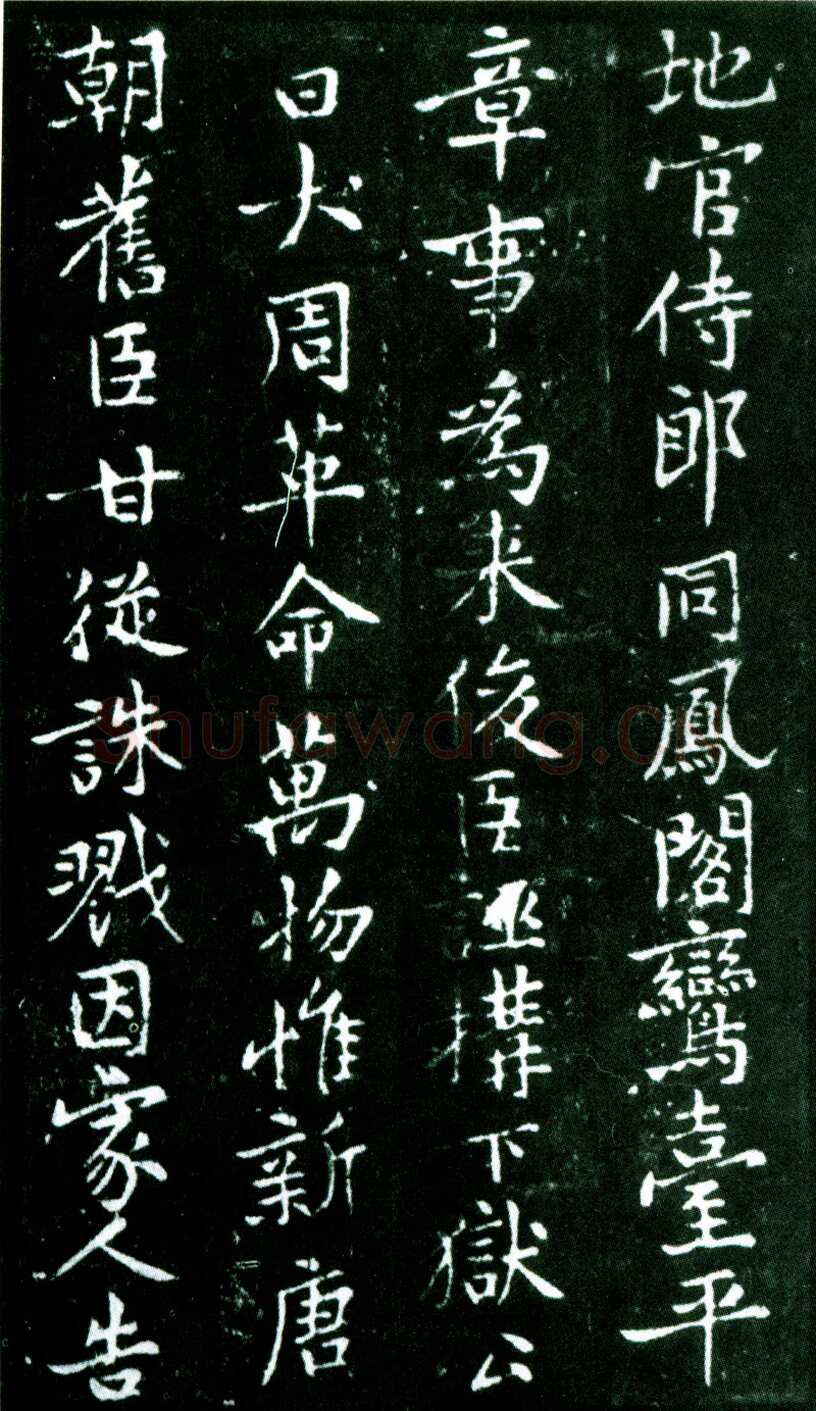 地官侍郎同鳳閣鸞臺平
章事為来俊臣誣搆下獄公
曰大周革命萬物惟新唐
朝舊臣甘從誅戮因家人告
shufawang.cn